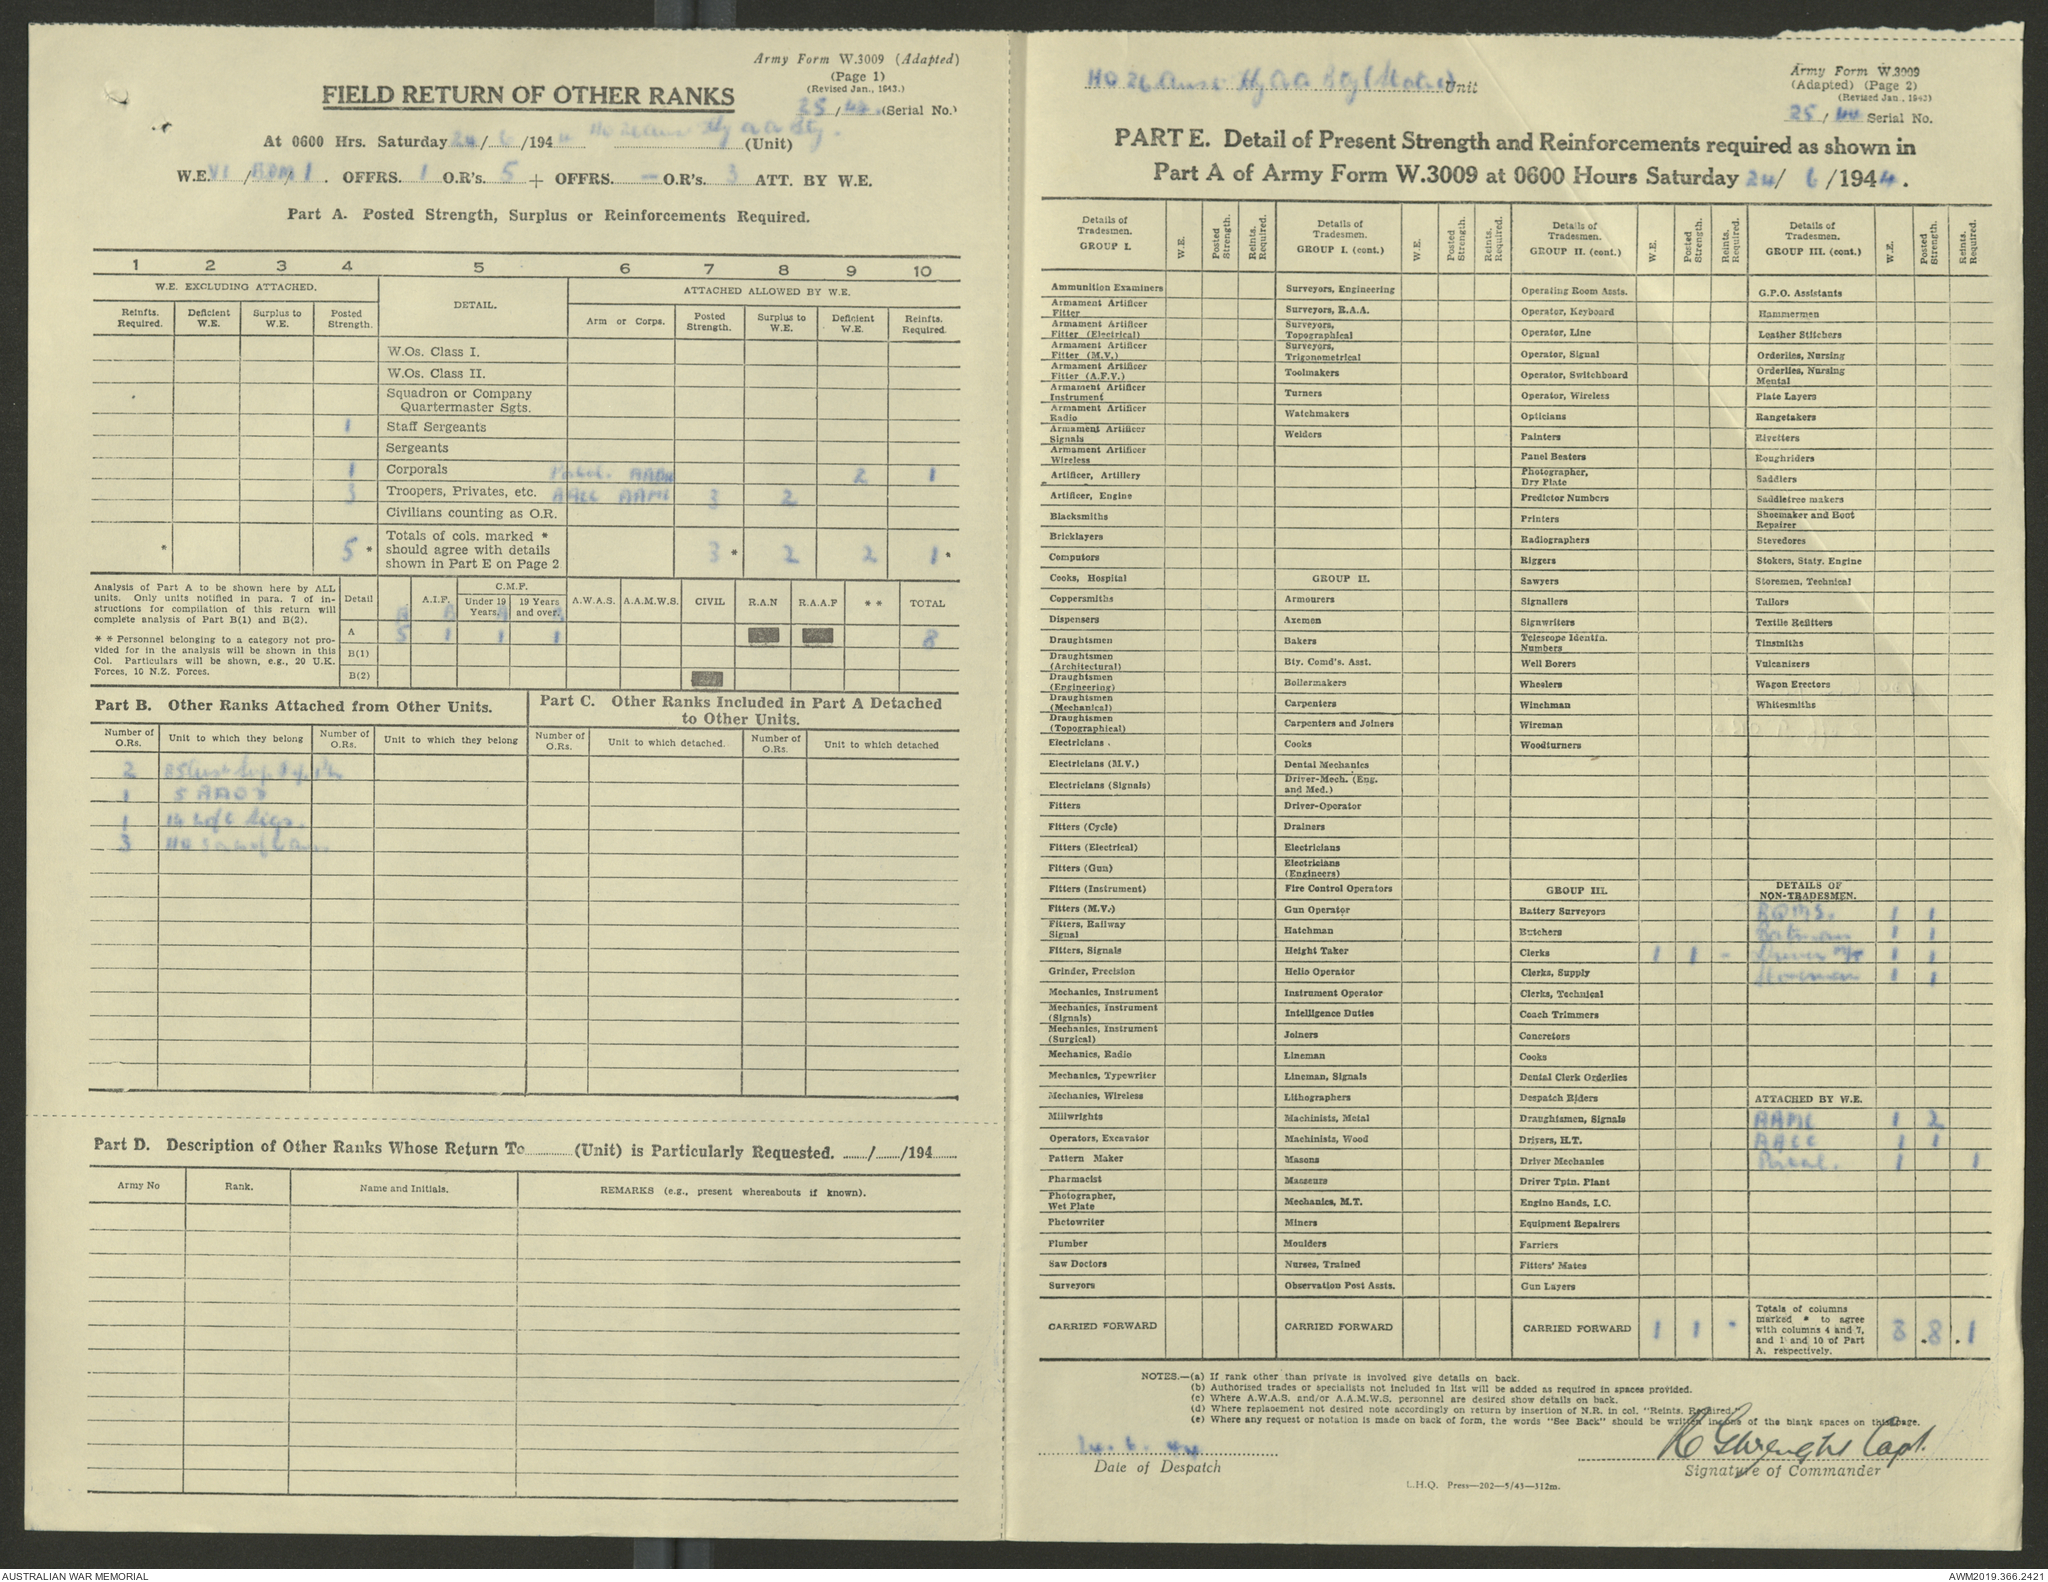 Army Form W.3009 (Adapted)
(Page 1)
(Revised Jan., 1943.)
FIELD RETURN OF OTHER RANKS
25/44. (Serial No.)
At 0600 Hrs. Saturday 24/6/1944 (Unit)
W.E. VI / / 1. OFFRS. 1 O.R's. 5 + OFFRS. — O.R's. 3 ATT. BY W.E.
Part A. Posted Strength, Surplus or Reinforcements Required.
1 2 3 4 5 6 7 8 9 10
W.E. EXCLUDING ATTACHED. DETAIL. ATTACHED ALLOWED BY W.E.
Reinfts. Required. Deficient W.E. Surplus to W.E. Posted Strength. Arm or Corps. Posted Strength. Surplus to W.E. Deficient W.E. Reinfts. Required.
W.Os. Class I.
W.Os. Class II.
Squadron or Company
Quartermaster Sgts.
1 Staff Sergeants
Sergeants
1 Corporals 2 1
3 Troopers, Privates, etc. AACC AAMC 3 2
Civilians counting as O.R.
* 5 * Totals of cols. marked * should agree with details shown in Part E on Page 2 3 * 2 2 1 *
Analysis of Part A to be shown here by ALL
units. Only units notified in para. 7 of in-
structions for compilation of this return will
complete analysis of Part B(1) and B(2).
* * Personnel belonging to a category not pro-
vided for in the analysis will be shown in this
Col. Particulars will be shown, e.g., 20 U.K.
Forces, 10 N.Z. Forces.
Detail A.I.F. C.M.F. Under 19 Years. 19 Years and over. A.W.A.S. A.A.M.W.S. CIVIL R.A.N R.A.A.F * * TOTAL
A 5 1 1 1 8
B(1)
B(2)
Part B. Other Ranks Attached from Other Units.
Part C. Other Ranks Included in Part A Detached
to Other Units.
Number of O.Rs. Unit to which they belong Number of O.Rs. Unit to which they belong Number of O.Rs. Unit to which detached. Number of O.Rs. Unit to which detached
2
1 5 AAOD
1 Sigs.
3 HQ
Part D. Description of Other Ranks Whose Return To (Unit) is Particularly Requested. / /194
Army No Rank. Name and Initials. REMARKS (e.g., present whereabouts if known).
HQ 26 Aust Hy A A Bty (Static) Unit
Army Form W.3009
(Adapted) (Page 2)
(Revised Jan., 1943)
25/44 Serial No.
PART E. Detail of Present Strength and Reinforcements required as shown in
Part A of Army Form W.3009 at 0600 Hours Saturday 24/6/1944.
Details of Tradesmen. GROUP I. W.E. Posted Strength. Reints. Required.
Ammunition Examiners
Armament Artificer Fitter
Armament Artificer Fitter (Electrical)
Armament Artificer Fitter (M.V.)
Armament Artificer Fitter (A.F.V.)
Armament Artificer Instrument
Armament Artificer Radio
Armament Artificer Signals
Armament Artificer Wireless
Artificer, Artillery
Artificer, Engine
Blacksmiths
Bricklayers
Computors
Cooks, Hospital
Coppersmiths
Dispensers
Draughtsmen
Draughtsmen (Architectural)
Draughtsmen (Engineering)
Draughtsmen (Mechanical)
Draughtsmen (Topographical)
Electricians
Electricians (M.V.)
Electricians (Signals)
Fitters
Fitters (Cycle)
Fitters (Electrical)
Fitters (Gun)
Fitters (Instrument)
Fitters (M.V.)
Fitters, Railway Signal
Fitters, Signals
Grinder, Precision
Mechanics, Instrument
Mechanics, Instrument (Signals)
Mechanics, Instrument (Surgical)
Mechanics, Radio
Mechanics, Typewriter
Mechanics, Wireless
Millwrights
Operators, Excavator
Pattern Maker
Pharmacist
Photographer, Wet Plate
Photowriter
Plumber
Saw Doctors
Surveyors
CARRIED FORWARD
Details of Tradesmen. GROUP I. (cont.) W.E. Posted Strength. Reints. Required.
Surveyors, Engineering
Surveyors, R.A.A.
Surveyors, Topographical
Surveyors, Trigonometrical
Toolmakers
Turners
Watchmakers
Welders
GROUP II.
Armourers
Axemen
Bakers
Bty. Comd's. Asst.
Boilermakers
Carpenters
Carpenters and Joiners
Cooks
Dental Mechanics
Driver-Mech. (Eng. and Med.)
Driver-Operator
Drainers
Electricians
Electricians (Engineers)
Fire Control Operators
Gun Operator
Hatchman
Height Taker
Helio Operator
Instrument Operator
Intelligence Duties
Joiners
Lineman
Lineman, Signals
Lithographers
Machinists, Metal
Machinists, Wood
Masons
Masseurs
Mechanics, M.T.
Miners
Moulders
Nurses, Trained
Observation Post Assts.
CARRIED FORWARD
Details of Tradesmen. GROUP II. (cont.) W.E. Posted Strength. Reints. Required.
Operating Room Assts.
Operator, Keyboard
Operator, Line
Operator, Signal
Operator, Switchboard
Operator, Wireless
Opticians
Painters
Panel Beaters
Photographer, Dry Plate
Predictor Numbers
Printers
Radiographers
Riggers
Sawyers
Signallers
Signwriters
Telescope Identfn. Numbers
Well Borers
Wheelers
Winchman
Wireman
Woodturners
GROUP III.
Battery Surveyors
Butchers
Clerks 1 1 -
Clerks, Supply
Clerks, Technical
Coach Trimmers
Concretors
Cooks
Dental Clerk Orderlies
Despatch Riders
Draughtsmen, Signals
Drivers, H.T.
Driver Mechanics
Driver Tptn. Plant
Engine Hands, I.C.
Equipment Repairers
Farriers
Fitters' Mates
Gun Layers
CARRIED FORWARD 1 1 -
Details of Tradesmen. GROUP III. (cont.) W.E. Posted Strength. Reints. Required.
G.P.O. Assistants
Hammermen
Leather Stitchers
Orderlies, Nursing
Orderlies, Nursing Mental
Plate Layers
Rangetakers
Rivetters
Roughriders
Saddlers
Saddletree makers
Shoemaker and Boot Repairer
Stevedores
Stokers, Staty. Engine
Storemen, Technical
Tailors
Textile Refitters
Tinsmiths
Vulcanizers
Wagon Erectors
Whitesmiths
DETAILS OF NON-TRADESMEN.
BQMS. 1 1
Batman 1 1
Driver M/T 1 1
Storeman 1 1
ATTACHED BY W.E.
AAMC 1 2
AACC 1 1
Postal. 1 1
Totals of columns marked * to agree with columns 4 and 7, and 1 and 10 of Part A. respectively. 8 . 8 . 1
NOTES.—(a) If rank other than private is involved give details on back.
(b) Authorised trades or specialists not included in list will be added as required in spaces provided.
(c) Where A.W.A.S. and/or A.A.M.W.S. personnel are desired show details on back.
(d) Where replacement not desired note accordingly on return by insertion of N.R. in col. "Reints. Required."
(e) Where any request or notation is made on back of form, the words "See Back" should be written in one of the blank spaces on this page.
24.6.44
Date of Despatch
Capt.
Signature of Commander
L.H.Q. Press—202—5/43—312m.
AUSTRALIAN WAR MEMORIAL
AWM2019.366.2421